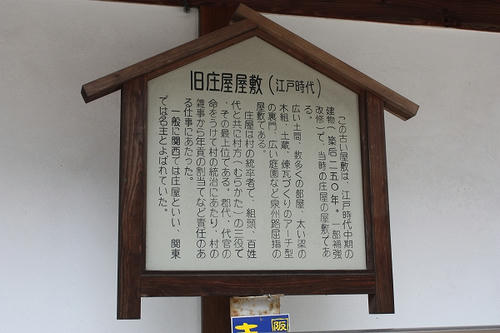 旧庄屋屋敷(江戸時代)
この古い屋敷は、江戸時代中期の
建物(築后二五〇年。一部補強
改修)で、当時の庄屋の屋敷であ
る。
広い土間、数多くの部屋、太い梁の
木組、土蔵、煉瓦づくりのアーチ型
の裏門、広い庭園など泉州路屈指の
屋敷である。
庄屋は村の統卒者で、組頭、百姓
代と共に村方(むらかた)の三役で
、その最上位である。郡代、代官の
命をうけて村の統治にあたり、村の
雑事から年貢の割当てなど責任のあ
る仕事にあたった。
一般に関西では庄屋といい、関東
では名主とよばれていた。